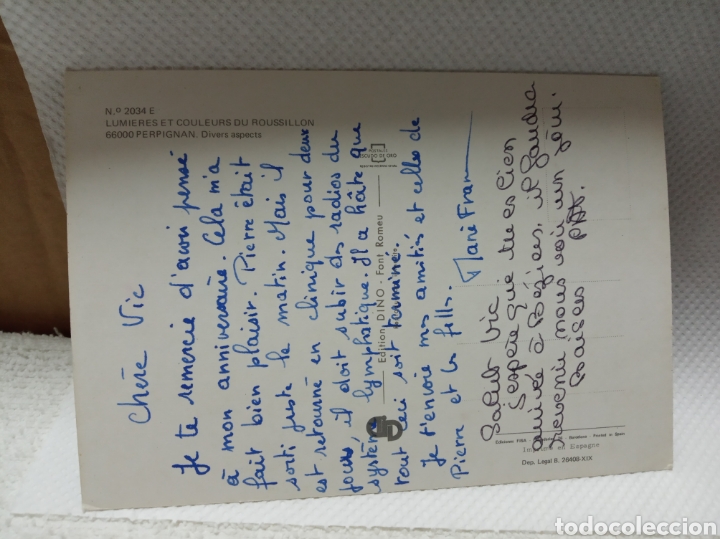 N.º 2034 E
LUMIERES ET COULEURS DU ROUSSILLON
66000 PERPIGNAN. Divers aspects
Chère Vic
Je te remercie d'avoir pensé
à mon anniversaire. Cela m'a
fait bien plaisir. Pierre était
sorti juste le matin. Mais il
est retourné en clinique pour deux
jours, il doit subir des radios du
système lymphatique. Il a hâte que
tout ceci soit terminé.
Je t'envoie mes amitiés et celles de
Pierre et les filles.
Marie Fran
Edition DINO - Font Romeu
Salut Vic
J'espère que tu es bien
arrivée à Béziers, il faudra
revenir nous voir un jour.
Baisers
Imprimé en Espagne
Dep. Legal B. 26409-XIX
todocoleccion